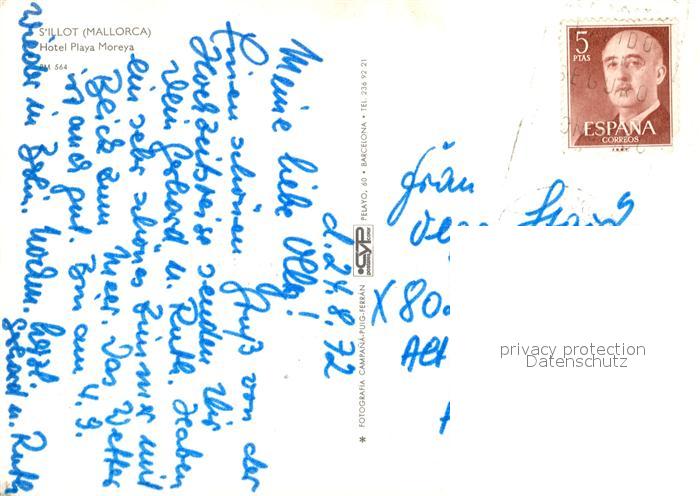 S'ILLOT (MALLORCA)
Hotel Playa Moreya
BM 564
d. 24.8.72
Meine liebe Olly!
Einen schönen Gruß von der
Hochzeitsreise senden Dir
Dein Gerhard u. Ruth. Haben
ein sehr schönes Zimmer mit
Blick zum Meer. Das Wetter
ist auch gut. Bin am 4.9.
wieder in Bln. Nochm. herzl.
Gerhard u. Ruth
* FOTOGRAFIA CAMPAÑÁ-PUIG-FERRÁN
CYP
PELAYO, 60 • BARCELONA • TEL. 236 92 21
5
PTAS
ESPAÑA
CORREOS
Frau
X 80
Alt
privacy protection
Datenschutz